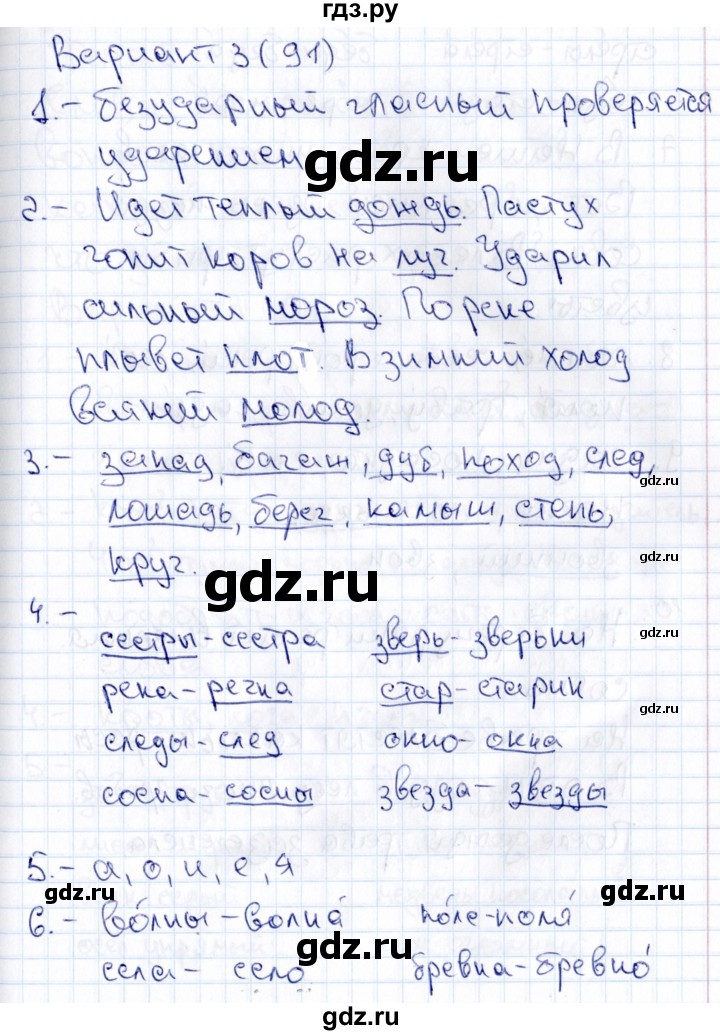 гдз.ру
Вариант 3 (91)
1.- безударный гласный проверяется
ударением
gdz.ru
2.- Идет теплый дождь. Пастух
гонит коров на луг. Ударил
сильный мороз. По реке
gdz.ru
плывет плот. В зимний холод
всякий молод.
gdz.ru
3.- запад, багаж, дуб, поход, след,
gdz.ru
лошадь, берег, камыш, степь,
gdz.ru
круг.
gdz.ru
gdz.ru
4.-
gdz.ru
сестры-сестра зверь-зверьки
река-речка стар-старик
gdz.ru
следы-след окно-окна
gdz.ru
сосна-сосны звезда-звезды
gdz.ru
5.- а, о, и, е, я
gdz.ru
gdz.ru
6.- во́лны-волна́ по́ле-поля́
gdz.ru
села- село́ бревна-бревно́
gdz.ru